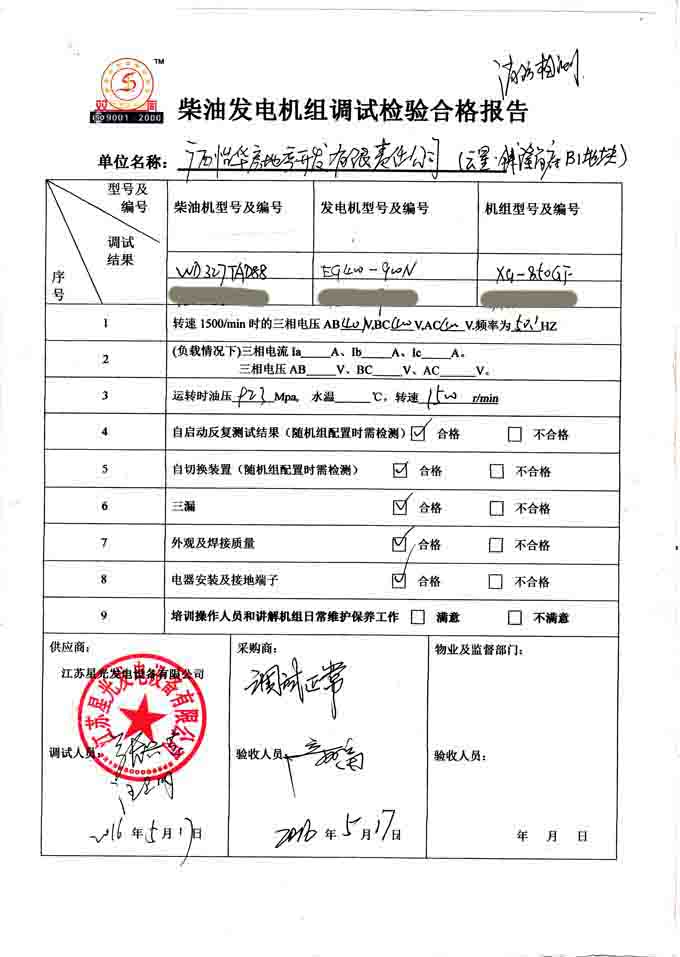 TM
双 同
ISO 9001 . 2000
柴油发电机组调试检验合格报告
单位名称: 怡华房地产开发有限责任公司
型号及
编号
柴油机型号及编号
发电机型号及编号
机组型号及编号
调试
结果
序
号
WD327TAD88
EG400-900N
XG-850GF
1
转速 1500/min 时的三相电压 AB 400 V,BC 400 V,AC 400 V.频率为 50.1 HZ
2
(负载情况下)三相电流 Ia____A、Ib____A、Ic____A。
三相电压 AB____V、BC____V、AC____V。
3
运转时油压 Mpa, 水温____℃, 转速 1500 r/min
4
自启动反复测试结果（随机组配置时需检测）☑ 合格 □ 不合格
5
自切换装置（随机组配置时需检测） ☑ 合格 □ 不合格
6
三漏 ☑ 合格 □ 不合格
7
外观及焊接质量 ☑ 合格 □ 不合格
8
电器安装及接地端子 ☑ 合格 □ 不合格
9
培训操作人员和讲解机组日常维护保养工作 □ 满意 □ 不满意
供应商:
江苏星光发电设备有限公司
江苏星光发电设备有限公司
调试人员:
2016 年 5 月 17 日
采购商:
调试正常
验收人员:
2016 年 5 月 17 日
物业及监督部门:
验收人员:
年 月 日